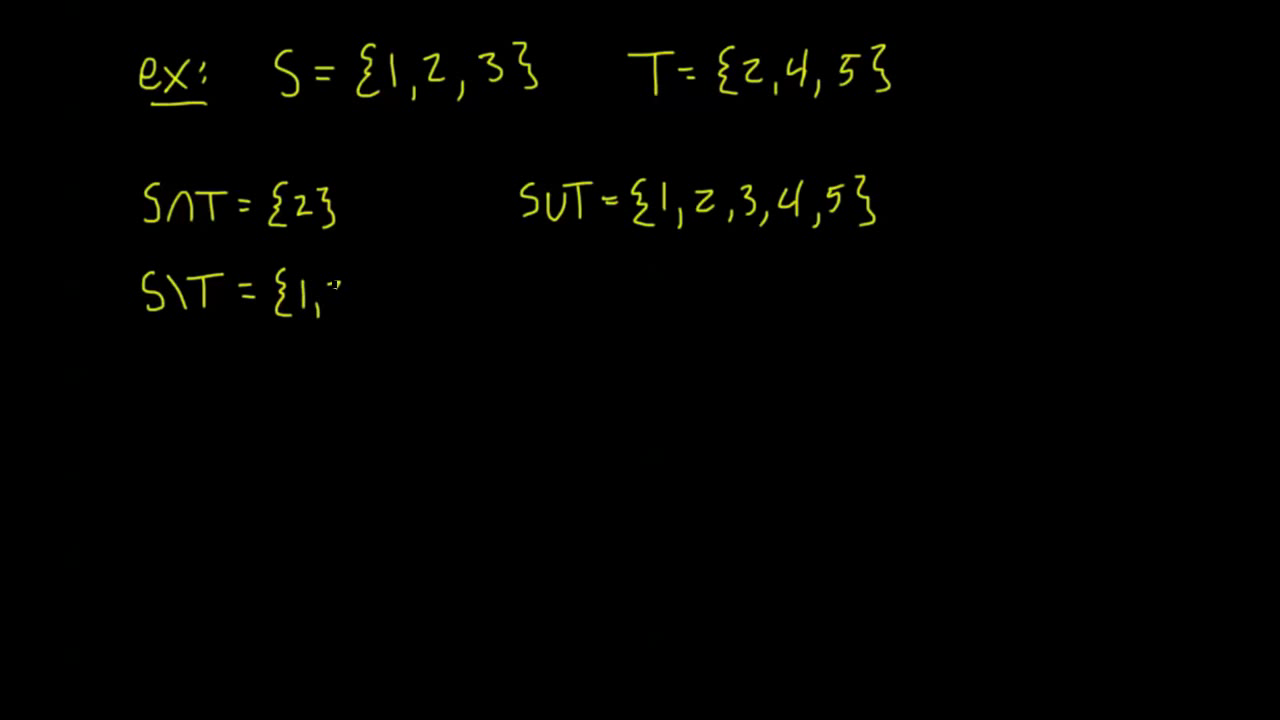 ex: S = {1, 2, 3} T = {2, 4, 5}
S∩T = {2} S∪T = {1, 2, 3, 4, 5}
S\T = {1,